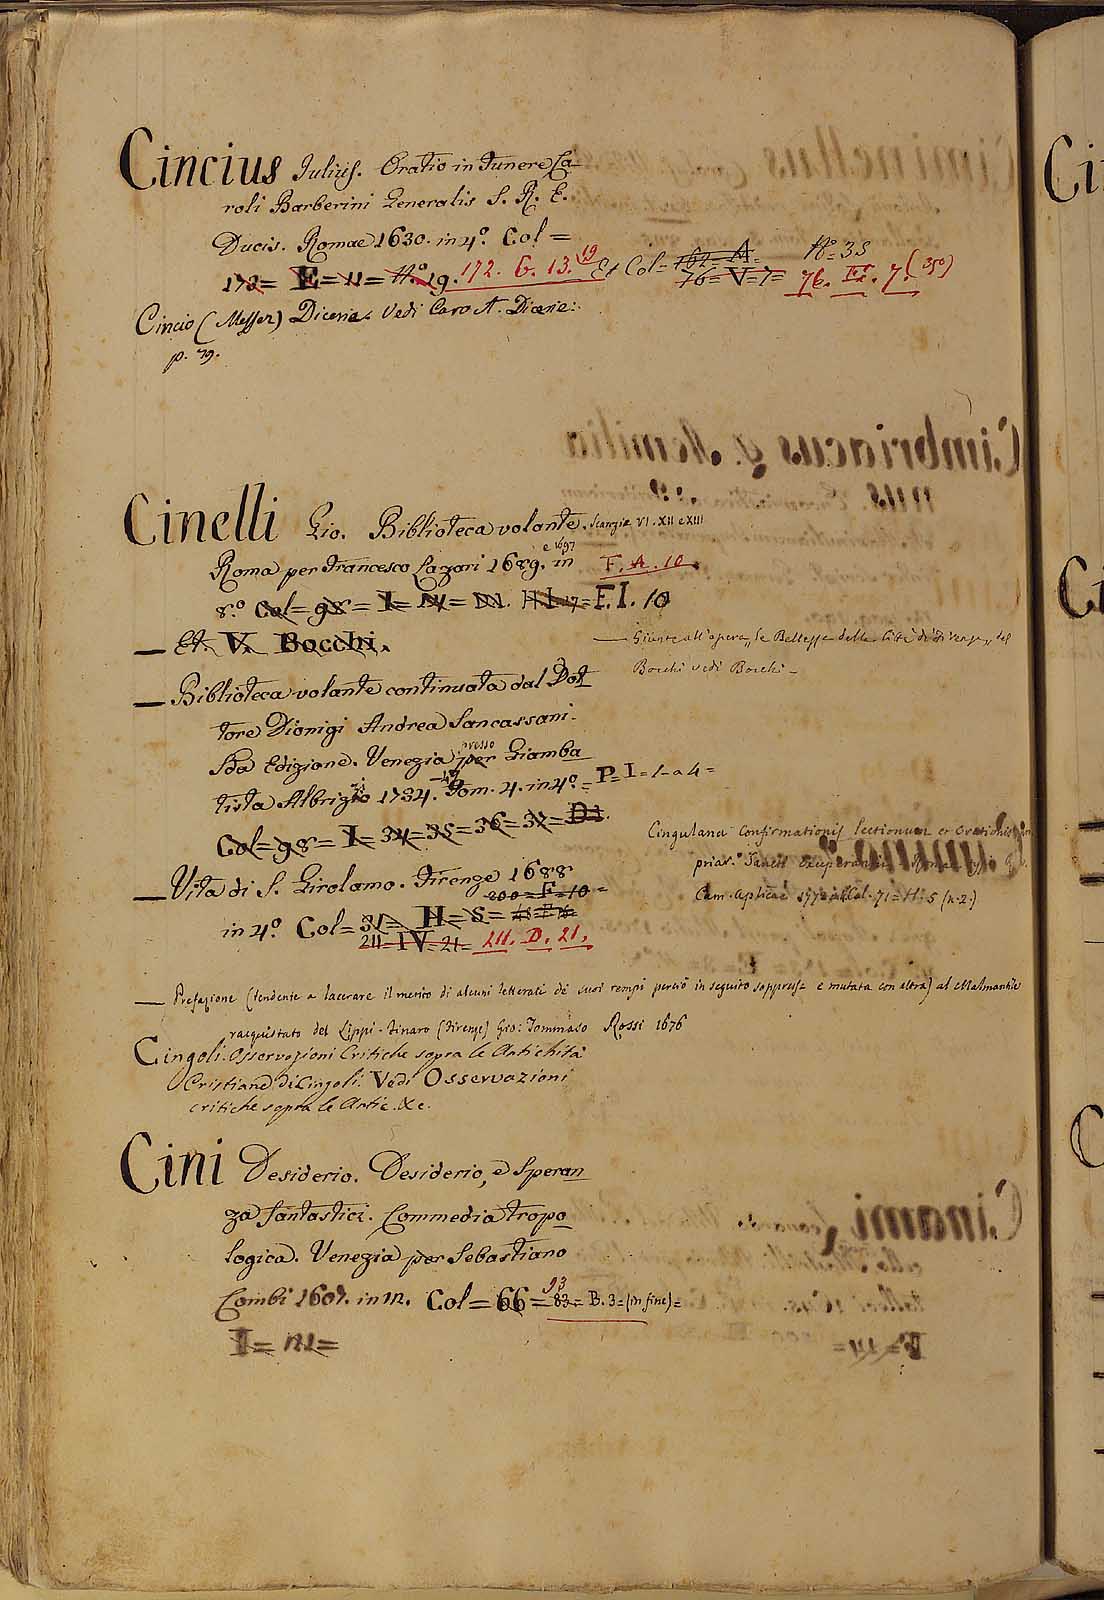 Cincius Julius. Oratio in Funere Ca
roli Barberini Generalis S. R. E.
Ducis. Romae 1630. in 4.º Col =
172 = E = 11 = Nº 19. 172. G. 13. 19 Et Col = 162 = A = Nº 35
76 = V = 7 = 76. 7. (35º)
Cincio (Messer) Dicerie. Vedi Caro A. Dicerie:
p. 79.
Cinelli Gio. Biblioteca volante. Scanzie VI. XII e XIII
Roma per Francesco Lazari 1689. e 1697 in F. A. 10.
8.º Col = 98 = I = F. I. 10
— Et. V. Bocchi.
— Giunte all'opera „le Bellezze della Città di Firenze„ del
Bocchi vedi Bocchi —
— Biblioteca volante continuata dal Dot
tore Dionigi Andrea Sancassani.
Sda Edizione. Venezia per presso Giamba
tista Albrizzi 1734. -47 Tom. 4. in 4º = P = I = 1 - a 4 =
Col = 98 = I = 34 = 35 = 36 = 37 =
Cingulanae Confirmationis lectionum et Orationis
priar.m Sancti Exuperantii Romae typ. R.
Cam. Aplicae 1772 Col. 71 = H = 5 (n. 2.)
— Vita di S. Girolamo. Firenze 1688
200 = F = 10 =
in 4º. Col = 31 = H = S =
211 = IV = 21 = 211. D. 21.
— Prefazione (tendente a lacerare il merito di alcuni letterati de' suoi tempi perciò in seguito soppressa e mutata con altra) al Malmantile
racquistato del Lippi - Finaro (Firenze) Gio: Tommaso Rossi 1676
Cingoli. Osservazioni Critiche sopra le Antichità
Cristiane di Cingoli. Vedi Osservazioni
critiche sopra le Antic. &c.
Cini Desiderio. Desiderio, e Speran
za fantastici. Commedia tropo
logica. Venezia per Sebastiano
Combi 1607. in 12. Col = 66 = 93 83 = B. 3 = (in fine) =
I = 121 =